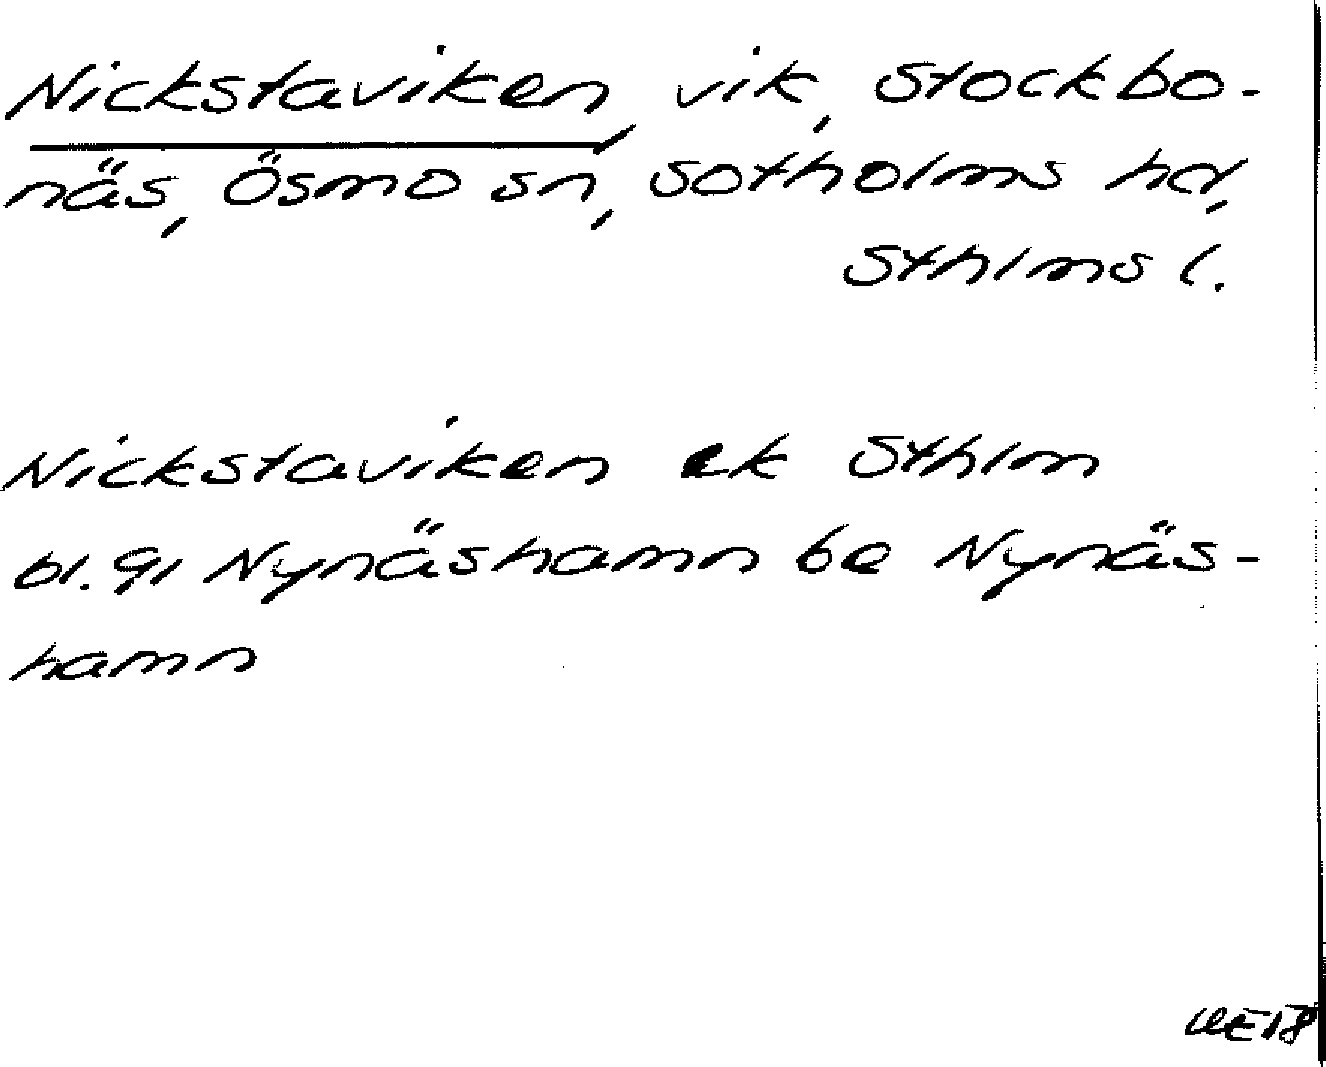 Nickstaviken, vik, Stockbo-
näs, Ösmo sn, Sotholms hd,
Sthlms l.
Nickstaviken ek Sthlm
bl. 91 Nynäshamn be Nynäs-
hamn